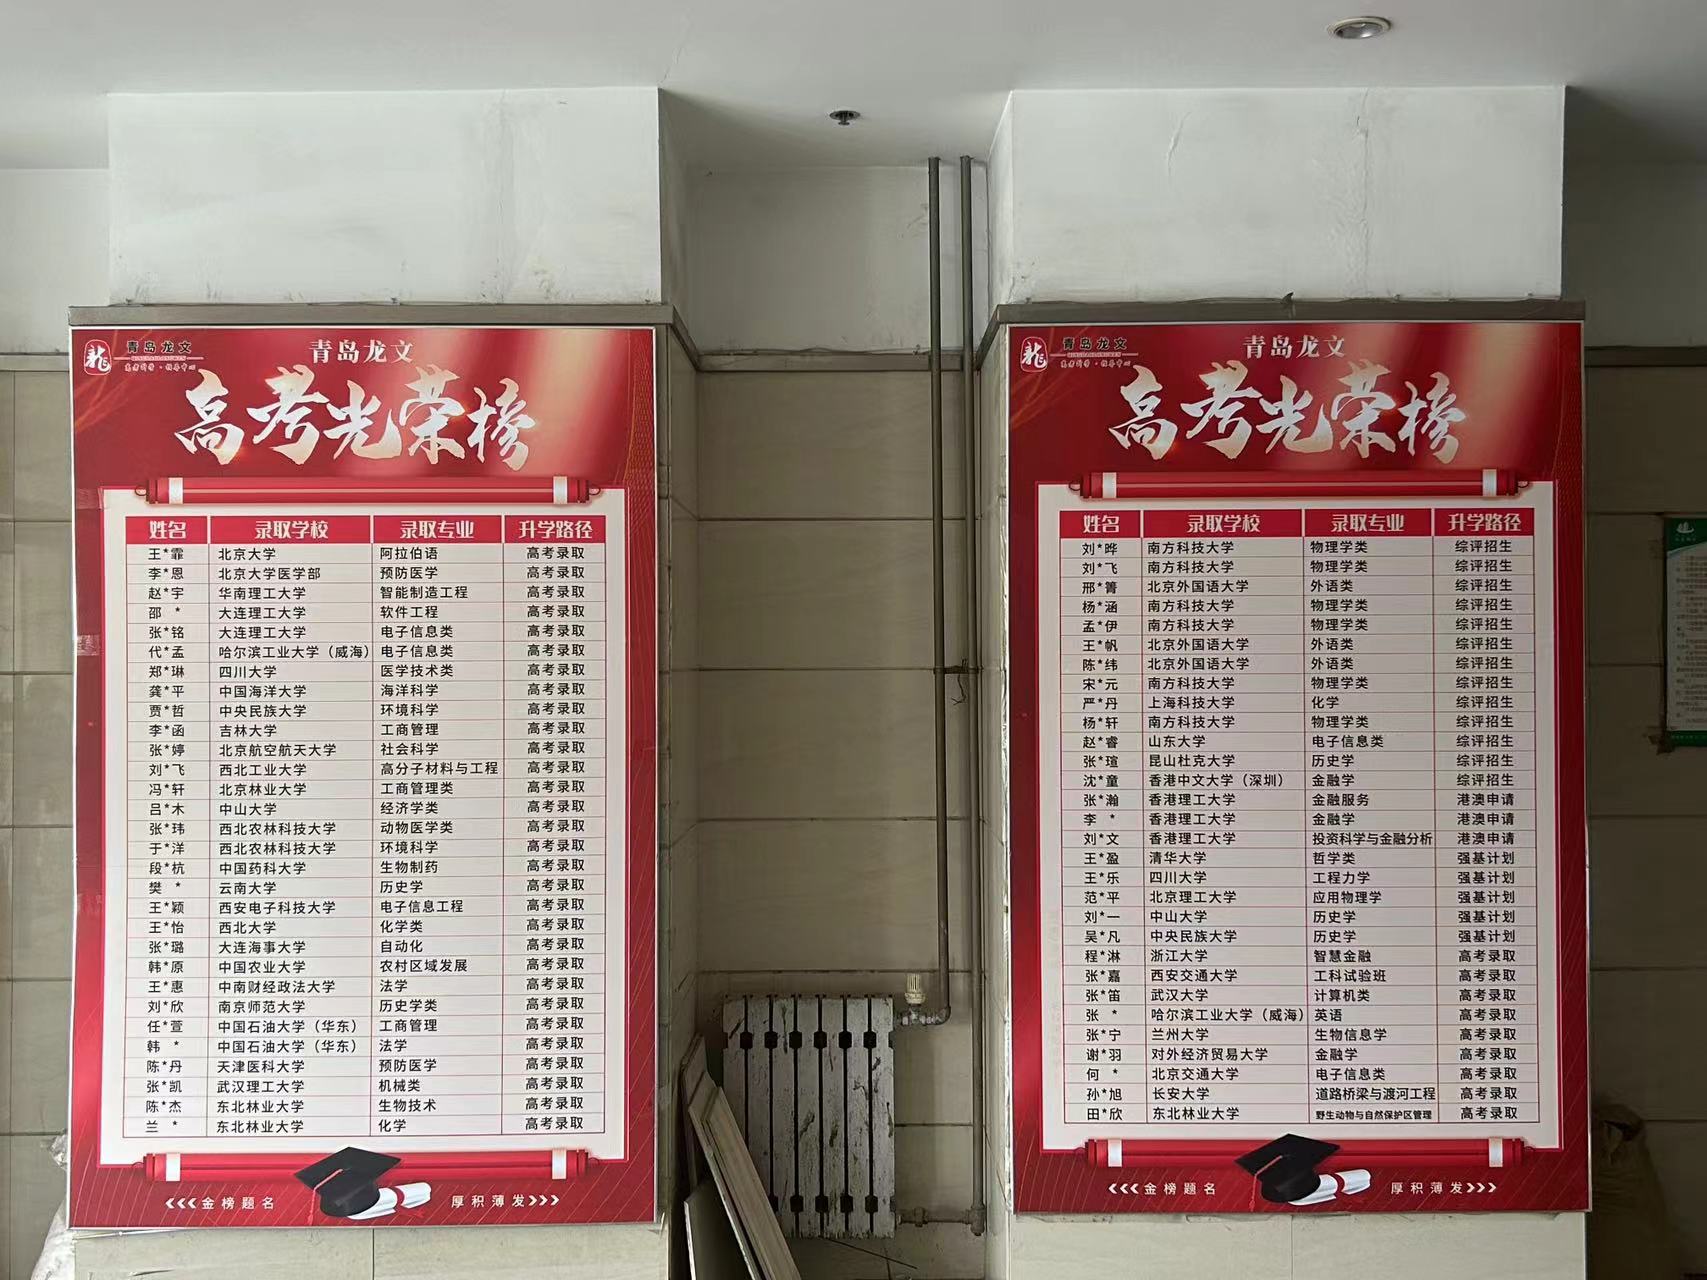 青岛龙文
青岛龙文
高考光荣榜
姓名 录取学校 录取专业 升学路径
王*霏 北京大学 阿拉伯语 高考录取
李*恩 北京大学医学部 预防医学 高考录取
赵*宇 华南理工大学 智能制造工程 高考录取
邵 * 大连理工大学 软件工程 高考录取
张*铭 大连理工大学 电子信息类 高考录取
代*孟 哈尔滨工业大学（威海） 电子信息类 高考录取
郑*琳 四川大学 医学技术类 高考录取
龚*平 中国海洋大学 海洋科学 高考录取
贾*哲 中央民族大学 环境科学 高考录取
李*函 吉林大学 工商管理 高考录取
张*婷 北京航空航天大学 社会科学 高考录取
刘*飞 西北工业大学 高分子材料与工程 高考录取
冯*轩 北京林业大学 工商管理类 高考录取
吕*木 中山大学 经济学类 高考录取
张*玮 西北农林科技大学 动物医学类 高考录取
于*洋 西北农林科技大学 环境科学 高考录取
段*杭 中国药科大学 生物制药 高考录取
樊 * 云南大学 历史学 高考录取
王*颖 西安电子科技大学 电子信息工程 高考录取
王*怡 西北大学 化学类 高考录取
张*璐 大连海事大学 自动化 高考录取
韩*原 中国农业大学 农村区域发展 高考录取
王*惠 中南财经政法大学 法学 高考录取
刘*欣 南京师范大学 历史学类 高考录取
任*萱 中国石油大学（华东） 工商管理 高考录取
韩 * 中国石油大学（华东） 法学 高考录取
陈*丹 天津医科大学 预防医学 高考录取
张*凯 武汉理工大学 机械类 高考录取
陈*杰 东北林业大学 生物技术 高考录取
兰 * 东北林业大学 化学 高考录取
金榜题名 厚积薄发
青岛龙文
青岛龙文
高考光荣榜
姓名 录取学校 录取专业 升学路径
刘*晔 南方科技大学 物理学类 综评招生
刘*飞 南方科技大学 物理学类 综评招生
邢*箐 北京外国语大学 外语类 综评招生
杨*涵 南方科技大学 物理学类 综评招生
孟*伊 南方科技大学 物理学类 综评招生
王*帆 北京外国语大学 外语类 综评招生
陈*纬 北京外国语大学 外语类 综评招生
宋*元 南方科技大学 物理学类 综评招生
严*丹 上海科技大学 化学 综评招生
杨*轩 南方科技大学 物理学类 综评招生
赵*睿 山东大学 电子信息类 综评招生
张*瑄 昆山杜克大学 历史学 综评招生
沈*童 香港中文大学（深圳） 金融学 综评招生
张*瀚 香港理工大学 金融服务 港澳申请
李 * 香港理工大学 金融学 港澳申请
刘*文 香港理工大学 投资科学与金融分析 港澳申请
王*盈 清华大学 哲学类 强基计划
王*乐 四川大学 工程力学 强基计划
范*平 北京理工大学 应用物理学 强基计划
刘*一 中山大学 历史学 强基计划
吴*凡 中央民族大学 历史学 强基计划
程*淋 浙江大学 智慧金融 高考录取
张*嘉 西安交通大学 工科试验班 高考录取
张*笛 武汉大学 计算机类 高考录取
张 * 哈尔滨工业大学（威海） 英语 高考录取
张*宁 兰州大学 生物信息学 高考录取
谢*羽 对外经济贸易大学 金融学 高考录取
何 * 北京交通大学 电子信息类 高考录取
孙*旭 长安大学 道路桥梁与渡河工程 高考录取
田*欣 东北林业大学 野生动物与自然保护区管理 高考录取
金榜题名 厚积薄发